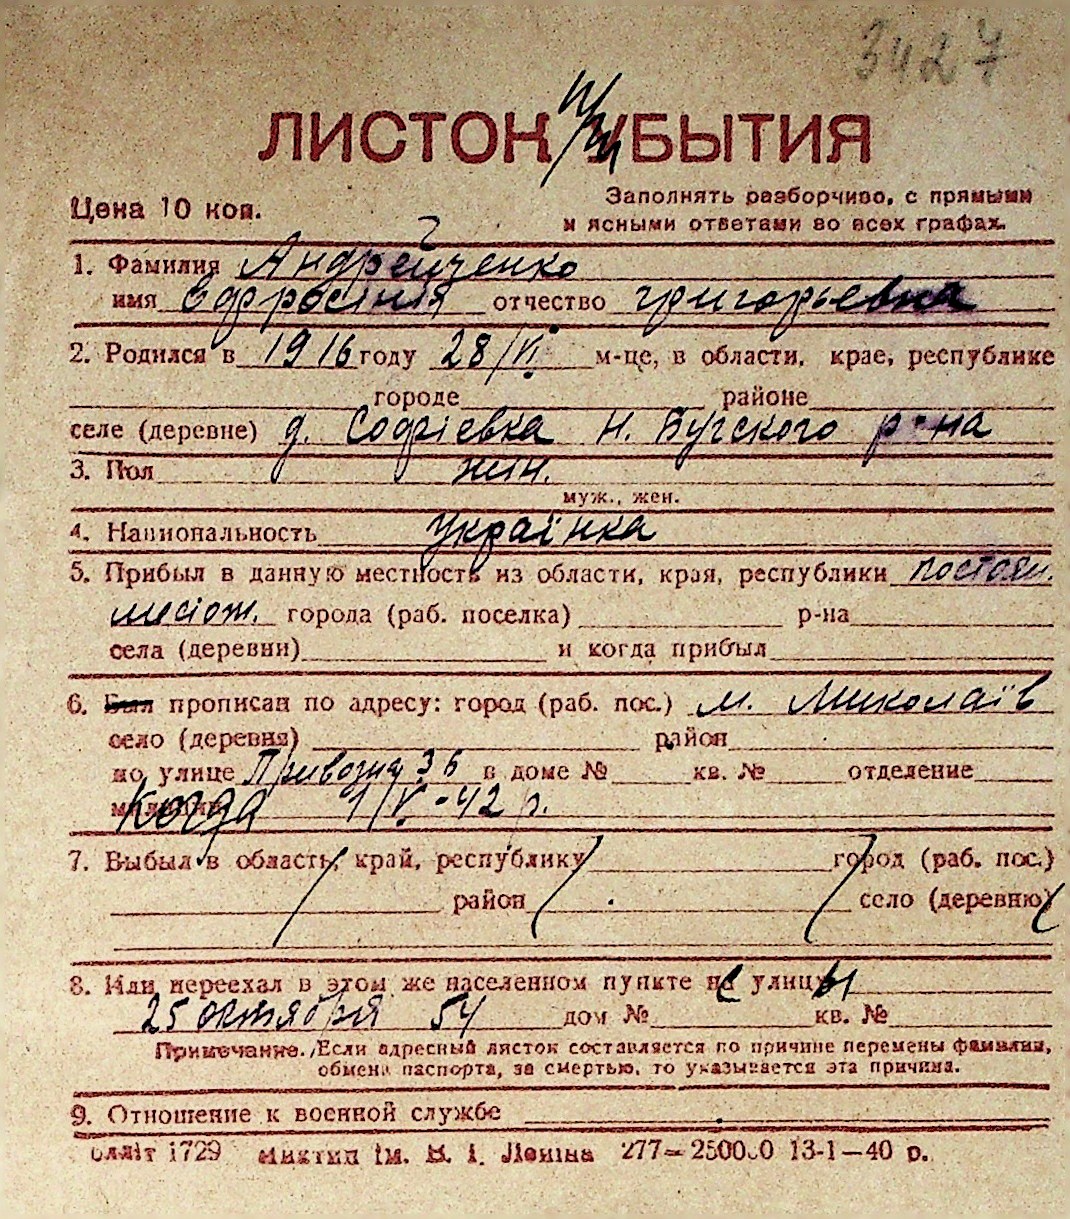 3427
ЛИСТОК УБЫТИЯ
Цена 10 коп.
Заполнять разборчиво, с прямыми
и ясными ответами во всех графах.
1. Фамилия Андрейченко
имя Єфросінія отчество Григорьевна
2. Родился в 1916 году 28/VI м-це, в области, крае, республике
городе районе
селе (деревне) д. Софіевка Н. Бугского р-на
3. Пол жін.
муж., жен.
4. Национальность українка
5. Прибыл в данную местность из области, края, республики постоян.
города (раб. поселка) р-на
села (деревни) и когда прибыл
6. Был прописан по адресу: город (раб. пос.) м. Миколаїв
село (деревня) район
по улице Привозна 36 в доме № кв. № отделение
милиции когда 1/V-42 р.
7. Выбыл в область, край, республику город (раб. пос.)
район село (деревню)
8. Или переехал в этом же населенном пункте не улицы
25 октября 54 дом № кв. №
Примечание. Если адресный листок составляется по причине перемены фамилии,
обмена паспорта, за смертью, то указывается эта причина.
9. Отношение к военной службе
1729 ім. В. І. Леніна 277—2500.0 13-1—40 р.